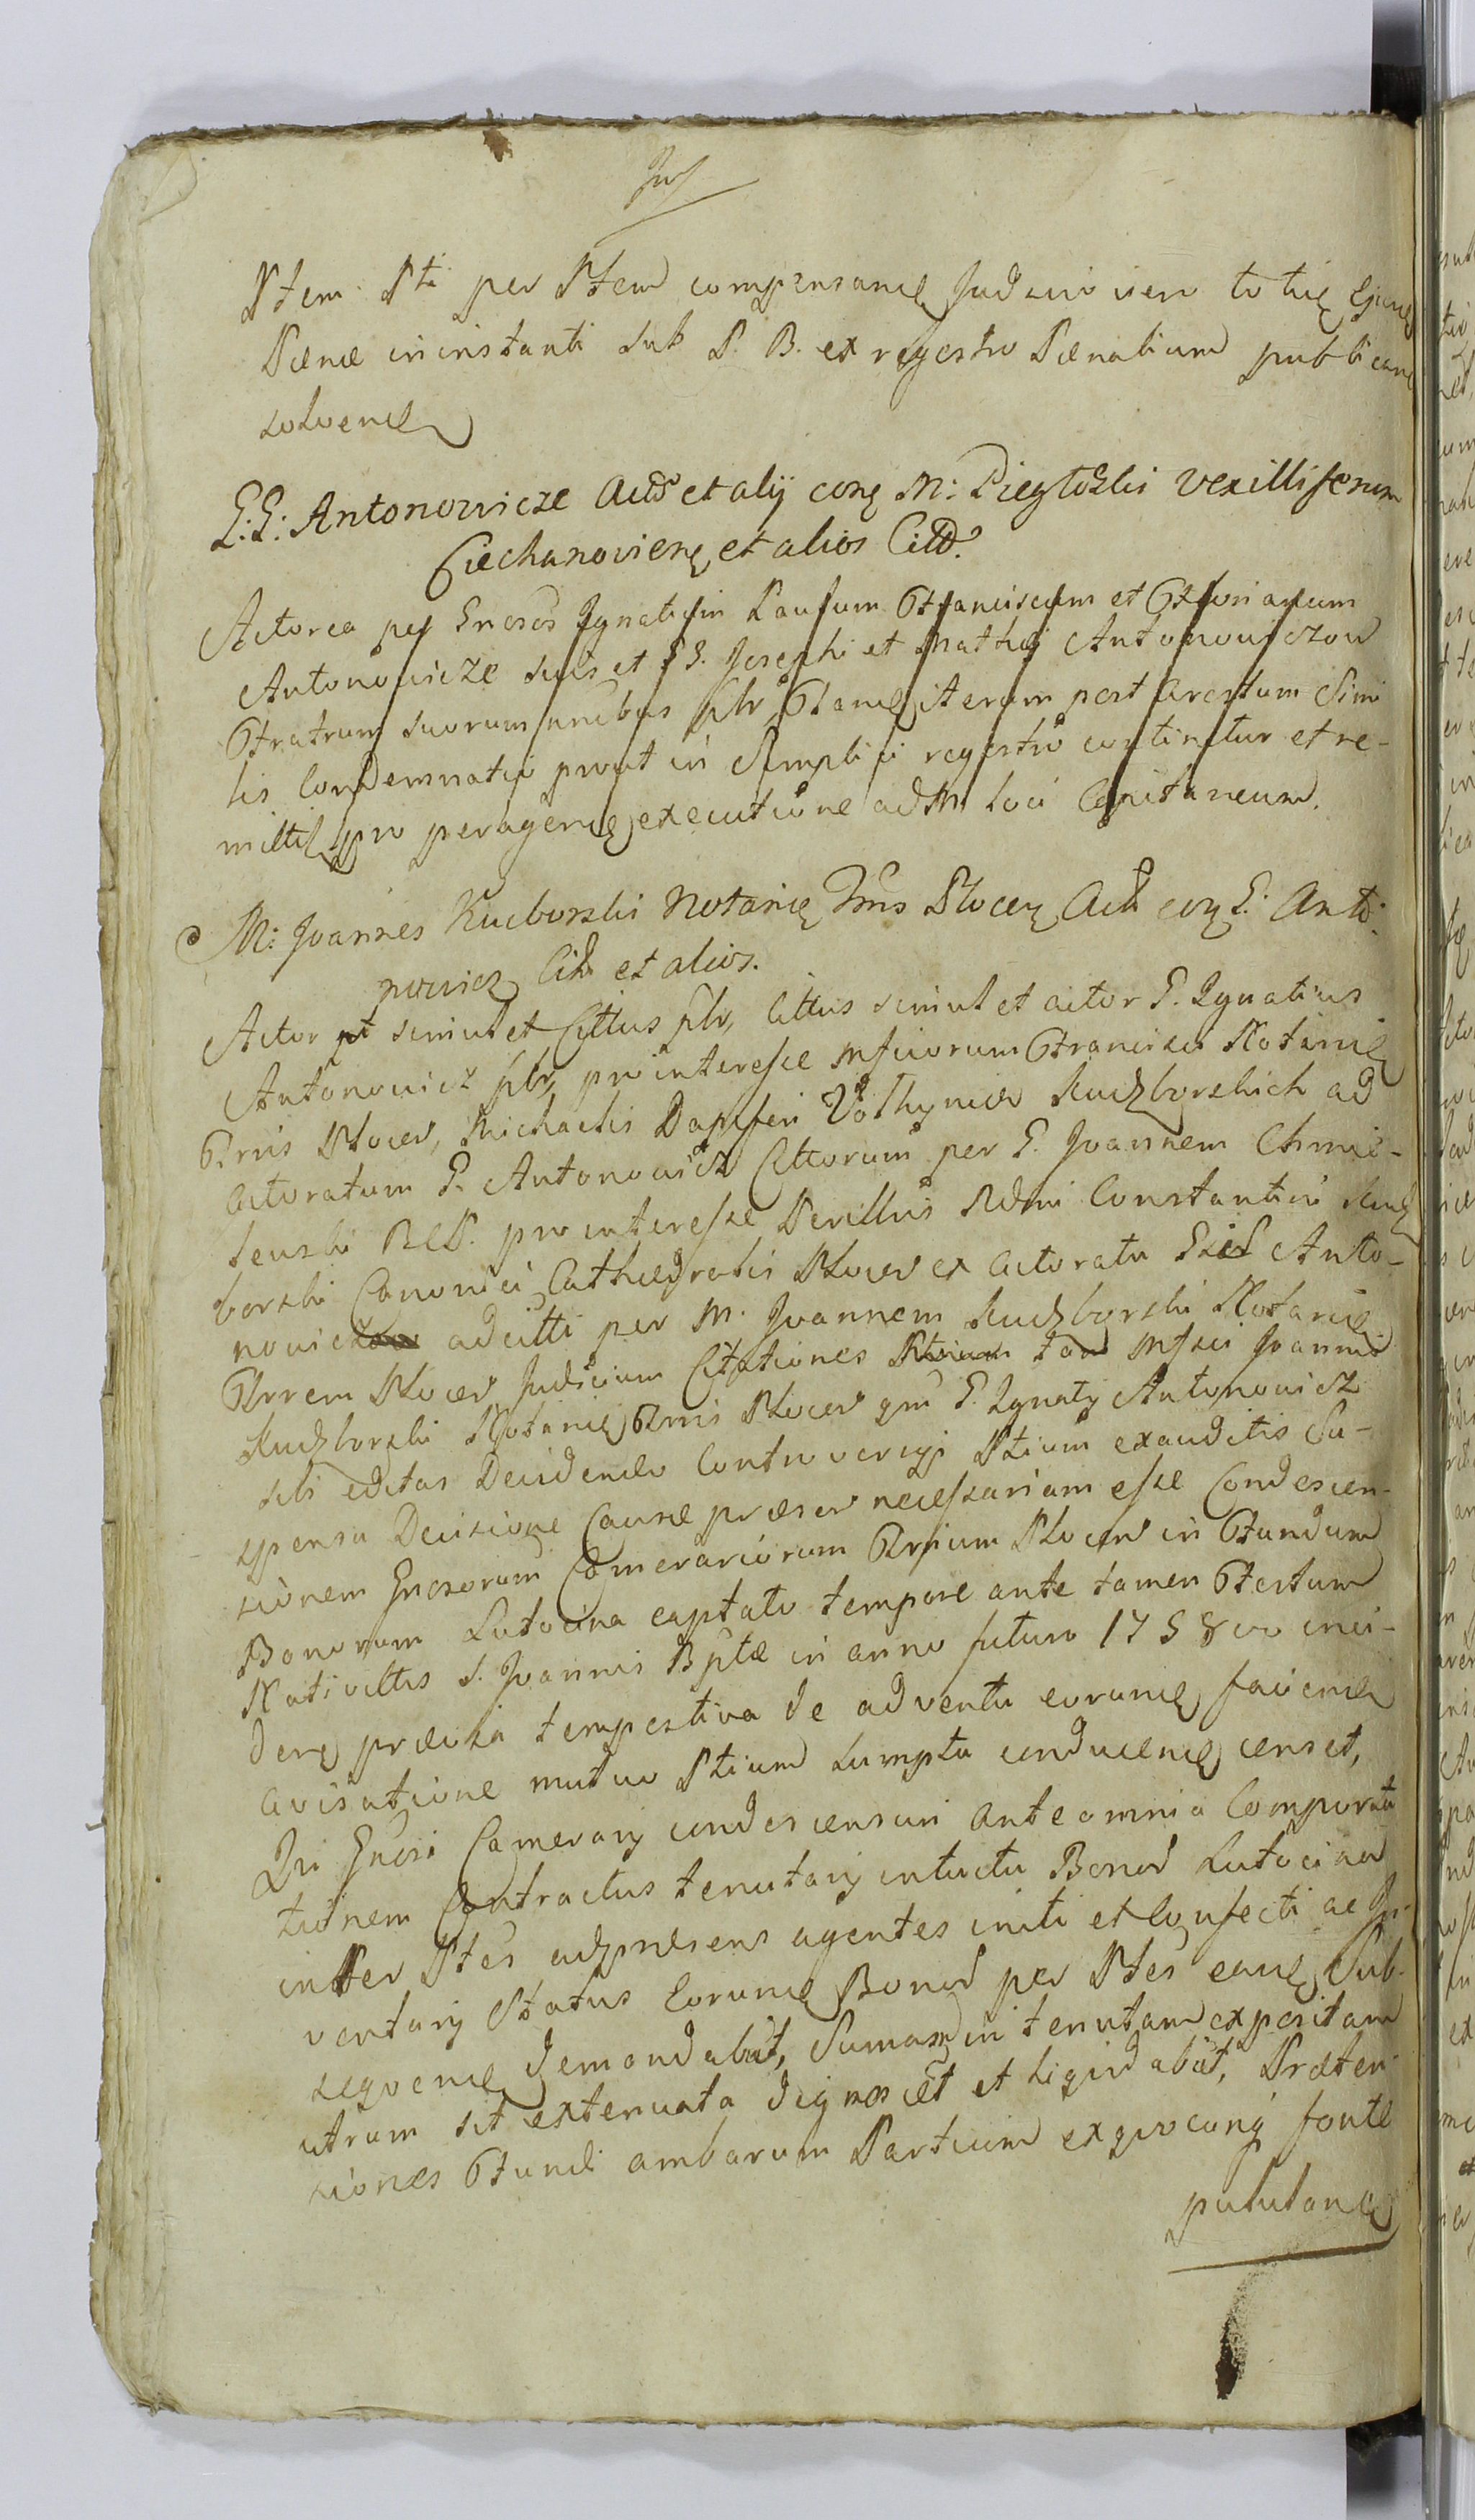 Ptem Pti per Ptem compensand Judicio vero totid ejusd
Pænæ in instanti sub P. B. ex regestro Pænalium publicand
solvend
G: G: Antonowicze Acto et alij con M: Piegłoski Vexilliferum
Ciechanovien et alios Citto
Actorea per Gnosos Ignatium Paulum Franciscum et Florianum
Antonowicze suis et GG. Josephi et Mathei Antonowiczow
Fratrum suorum nnibus plr, Fiend iterum post Arestum Simi
lis Condemnatio prout in Simplici regestro continetur et re-
mittit pro peragend executione ad M. Loci Capitaneum.
M: Joannes Kuczborski Notari Trris Plocen Act con G. Anto-
nowicz Citt et alios.
Actor pt simul et Cittus plr, Cittus simul et actor G. Ignatius
Antonowicz plr, pro interesse Mficorum Francisci Notarii
Trris Plocen, Michaelis Dapiferi Volhynien Kuczborskich ad
actoratum G. Antonowicz Cittorum per G. Joannem Chmie-
lewski RCP. pro interesse Perillris Rdmi Constantini Kucz
borski Canonici Cathedralis Plocen ex actoratu Antono-
nowicz adcitti per M. Joannem Kuczborski Notari
Trrem Plocen Judicium Citationes tam Mfici Joannis
Kuczborski Notarii Trris Plocen qm G. Ignatij Antonowicz
sibi editas Decidendo Controversijs Ptium exauditis Su-
spensa Decisione Causæ præsen necessariam esse Condescen-
sionem Gnosorum Camerariorum Trrium Plocen in Fundum
Bonorum Lutocina captato tempore ante tamen Festum
Nativittis S. Joannis Bptæ in anno futuro 1758vo inci-
den prævia tempestiva de adventu eorund faciend
avisatione mutuo Ptium sumptu conducend censet,
Qui Gnosi Camerarij condescensuri ante omnia Comporta
tionem Contractus tenutarij intuitu Bonor Lutocina
inter Ptes adpræsens agentes initi et Confecti ac In-
ventarij Status eorund Bonor per Ptes eand Sub-
seqvend demandabit, Sumam in tenutam expositam
utrum sit extenuata dignoscet et liqvidabit, Præten-
siones Fundi ambarum Partium exqvocunq fonte
pulluland